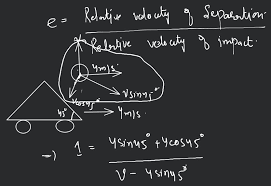 e = Relative velocity of Separation
Relative velocity of impact.
4m/s.
4cos45°
vsin45°
45°
4m/s.
⇒ 1 = 4sin45° + 4cos45°
v - 4sin45°